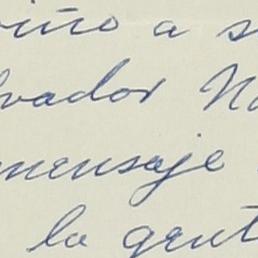 iño a s
vador No
mensaje
la gent